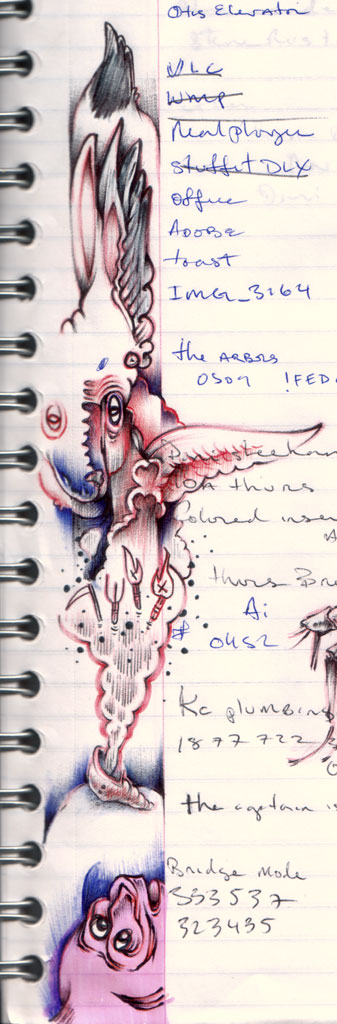 Otis Elevator
VLC
WMP
Realplayer
Stuffit DLX
office
Adobe
toast
IMG_3264
the ARBORS
0509 !FED
thurs
Colored inser
thurs Bre
Ai
# 0452
KC plumbing
1877 722
the captain is
Bridge mode
333537
323435